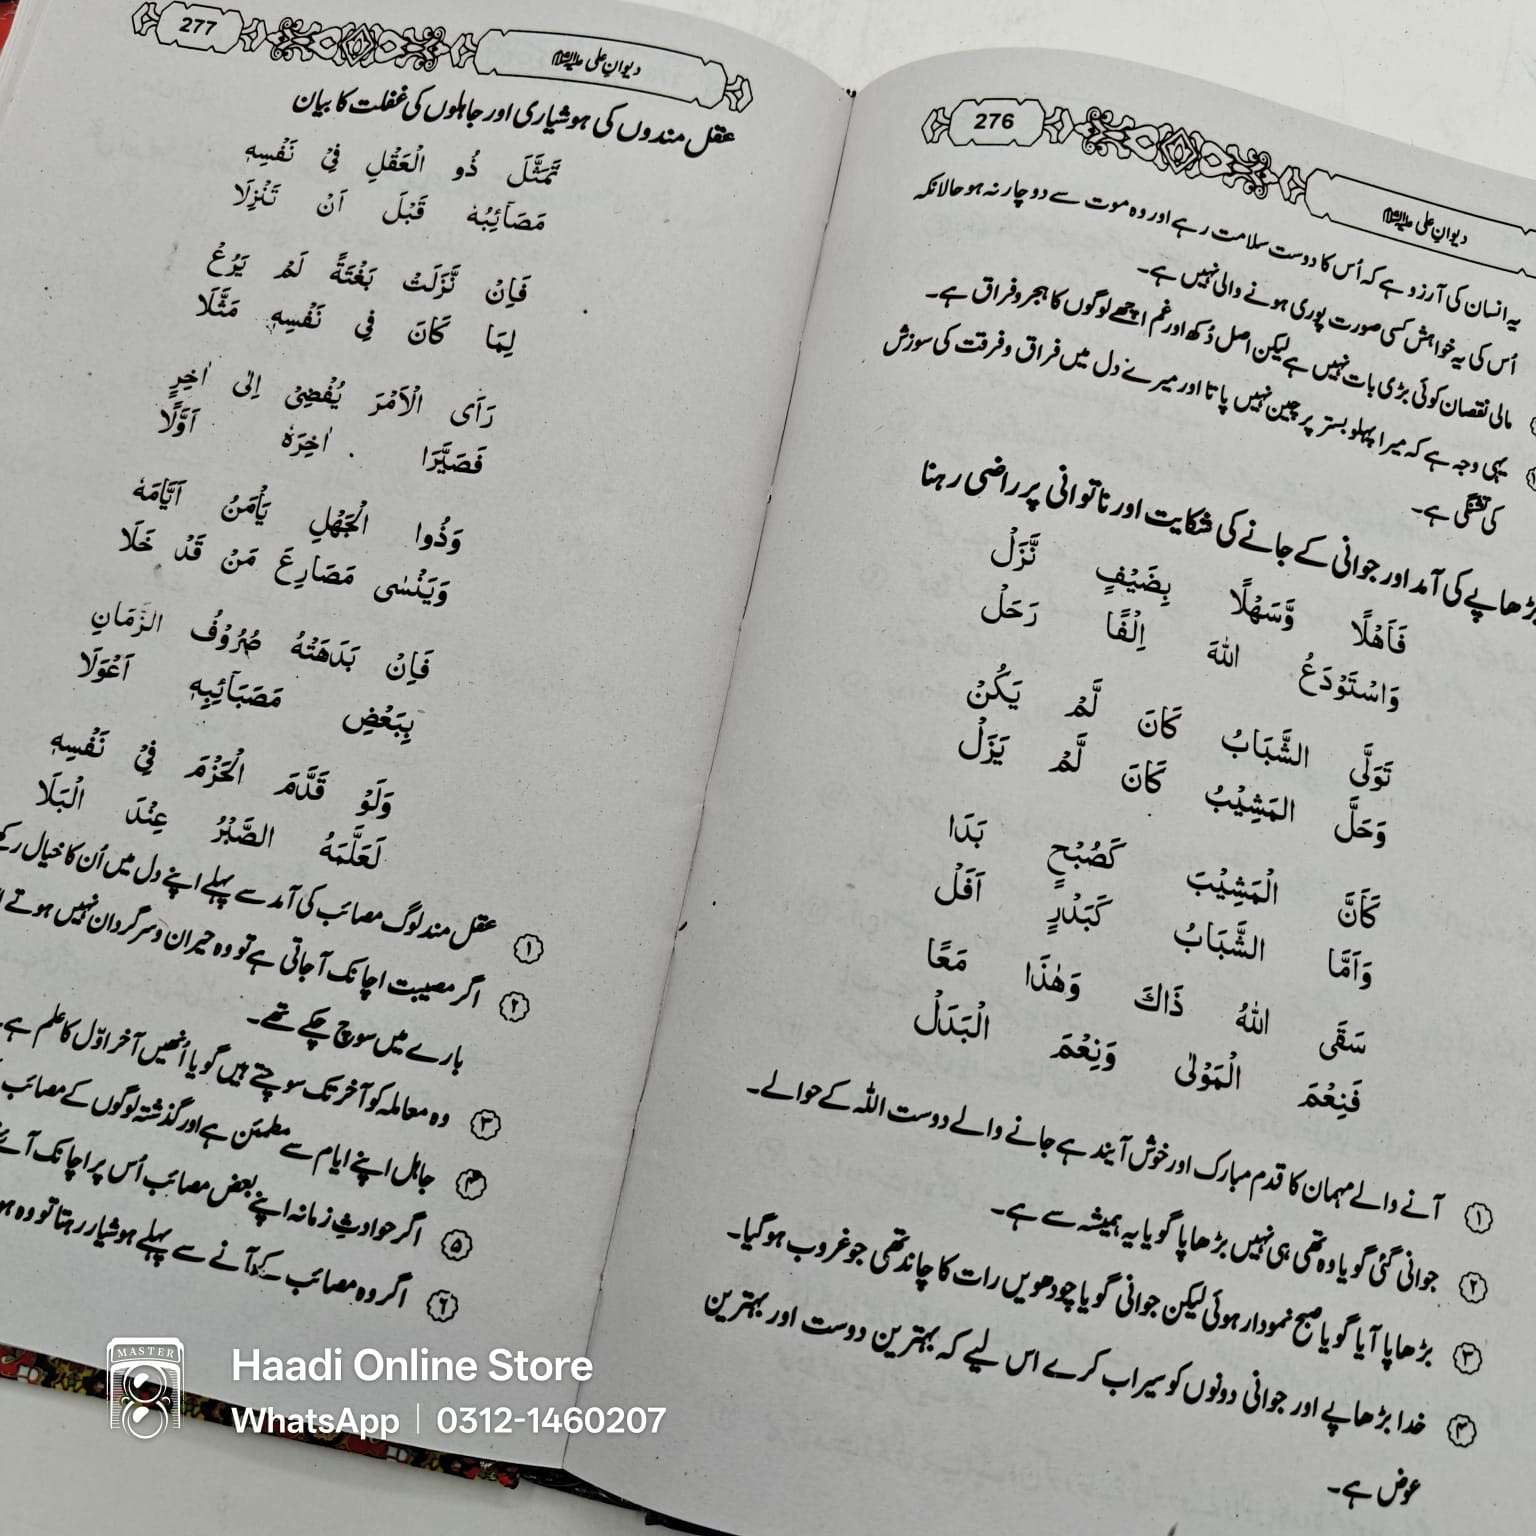 276
دیوانِ علی علیہ السلام
یہ انسان کی آرزو ہے کہ اُس کا دوست سلامت رہے اور وہ موت سے دوچار نہ ہو حالانکہ
اُس کی یہ خواہش کسی صورت پوری ہونے والی نہیں ہے۔
مالی نقصان کوئی بڑی بات نہیں ہے لیکن اصل دُکھ اور غم اچھے لوگوں کا ہجر و فراق ہے۔
یہی وجہ ہے کہ میرا پہلو بستر پر چین نہیں پاتا اور میرے دل میں فراق و فرقت کی سوزش
کی تشنگی ہے۔
بڑھاپے کی آمد اور جوانی کے جانے کی شکایت اور ناتوانی پر راضی رہنا
فَاَهْلًا وَّسَهْلًا بِضَيْفٍ نَّزَلْ
وَاسْتَوْدَعُ اللهَ اِلْفًا رَحَلْ
تَوَلَّى الشَّبَابُ كَانَ لَّمْ يَكُنْ
وَحَلَّ المَشِيْبُ كَانَ لَّمْ يَزَلْ
كَاَنَّ الْمَشِيْبَ كَصُبْحٍ بَدَا
وَاَمَّا الشَّبَابُ كَبَدْرٍ اَفَلْ
سَقَى اللهُ ذَاكَ وَهٰذَا مَعًا
فَنِعْمَ الْمَوْلٰى وَنِعْمَ الْبَدَلْ
۱ آنے والے مہمان کا قدم مبارک اور خوش آیند ہے جانے والے دوست اللہ کے حوالے۔
۲ جوانی گئی گویا وہ تھی ہی نہیں بڑھاپا گویا یہ ہمیشہ سے ہے۔
۳ بڑھاپا آیا گویا صبح نمودار ہوئی لیکن جوانی گویا چودھویں رات کا چاند تھی جو غروب ہو گیا۔
۴ خدا بڑھاپے اور جوانی دونوں کو سیراب کرے اس لیے کہ بہترین دوست اور بہترین
عوض ہے۔
277
دیوانِ علی علیہ السلام
عقل مندوں کی ہوشیاری اور جاہلوں کی غفلت کا بیان
تَمَثَّلَ ذُو الْعَقْلِ فِيْ نَفْسِهٖ
مَصَآئِبُهٗ قَبْلَ اَنْ تَنْزِلَا
فَاِنْ نَّزَلَتْ بَغْتَةً لَمْ يَرُعْ
لِمَا كَانَ فِي نَفْسِهٖ مَثَّلَا
رَآى الْاَمْرَ يُفْضِيْ اِلٰى اٰخِرٍ
فَصَيَّرَا اٰخِرَهٗ اَوَّلًا
وَذُوا الْجَهْلِ يَأْمَنُ اَيَّامَهٗ
وَيَنْسٰى مَصَارِعَ مَنْ قَدْ خَلَا
فَاِنْ بَدَهَتْهُ صُرُوْفُ الزَّمَانِ
بِبَعْضِ مَصَبَآئِبِهٖ اَعْوَلَا
وَلَوْ قَدَّمَ الْحَزْمَ فِيْ نَفْسِهٖ
لَعَلَّمَهُ الصَّبْرُ عِنْدَ الْبَلَا
۱ عقل مند لوگ مصائب کی آمد سے پہلے اپنے دل میں اُن کا خیال
۲ اگر مصیبت اچانک آ جاتی ہے تو وہ حیران و سرگردان نہیں ہوتے
بارے میں سوچ چکے تھے۔
۳ وہ معاملہ کو آخر تک سوچتے ہیں گویا اُنھیں آخر اوّل کا علم ہے۔
۴ جاہل اپنے ایام سے مطمئن ہے اور گذشتہ لوگوں کے مصائب
۵ اگر حوادثِ زمانہ اپنے بعض مصائب اُس پر اچانک
۶ اگر وہ مصائب کے آنے سے پہلے ہوشیار رہتا تو وہ
MASTER
Haadi Online Store
WhatsApp | 0312-1460207